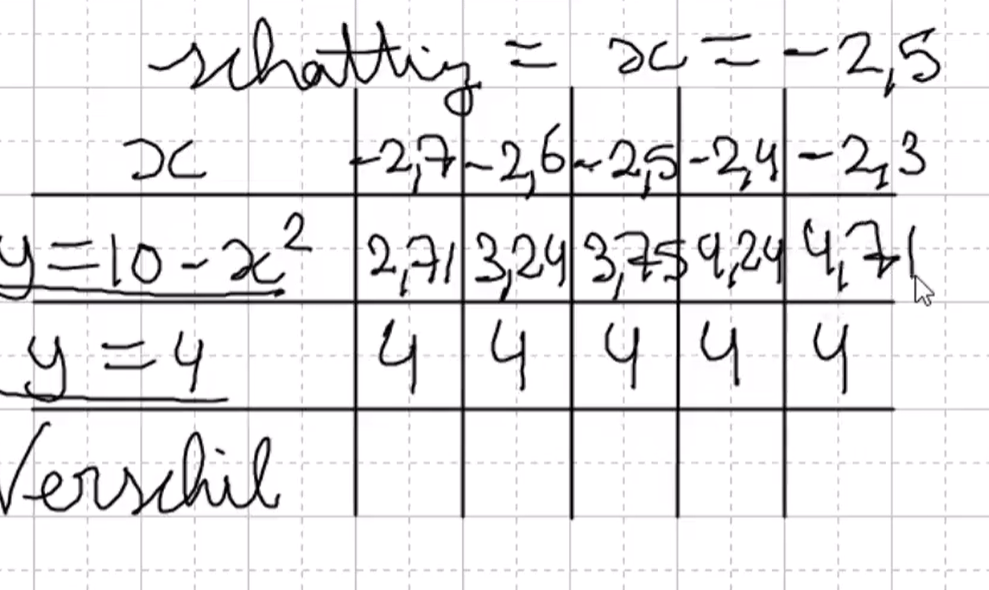 schatting = x = -2,5
x -2,7 -2,6 -2,5 -2,4 -2,3
y=10-x² 2,71 3,24 3,75 4,24 4,71
y=4 4 4 4 4 4
Verschil